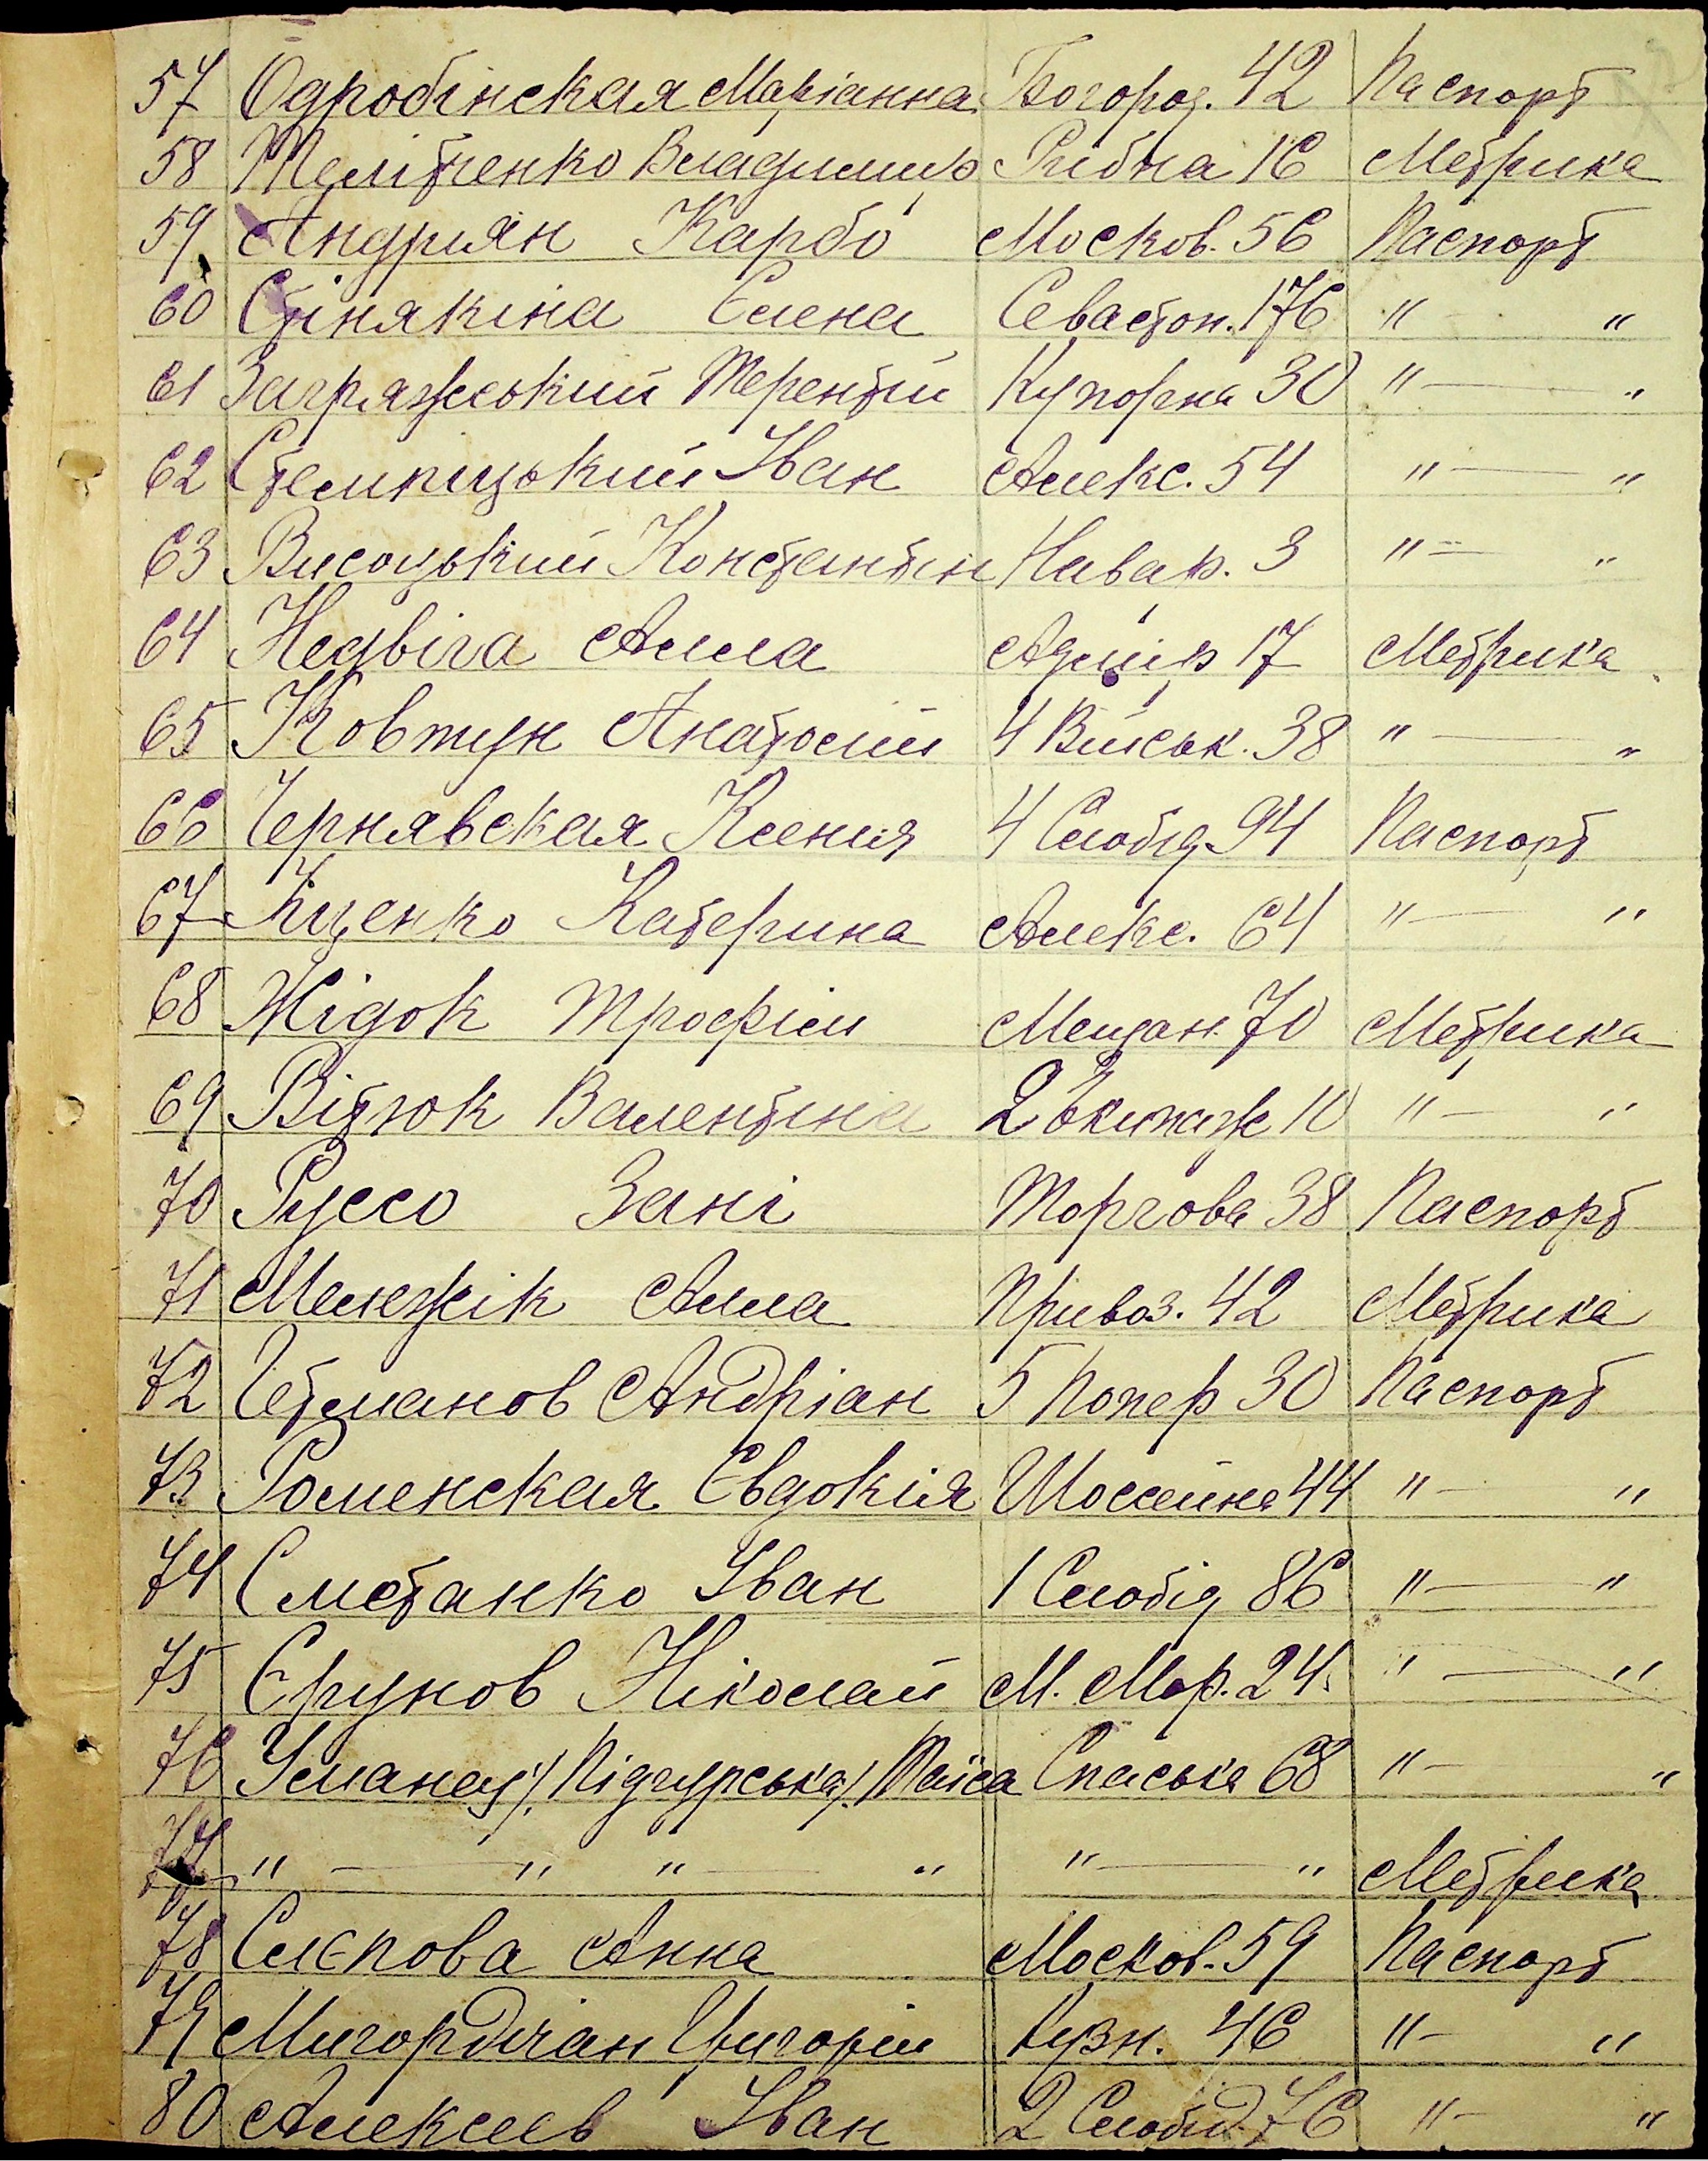 57 Одробінская Маріанна Богород. 42 Паспорт
58 Телітченко Владимир Рибна 16 Метрика
59 Андриян Карбо Москов. 56 Паспорт
60 Стінякіна Єлена Севастоп. 176 " — "
61 Загряжський Терентій Купорна 30 " — "
62 Стемпіцький Іван Алекс. 54 " — "
63 Висоцький Константін Навар. 3 " — "
64 Недвіга Алла Адмір 17 Метрика
65 Ковтун Анатолій 4 Військ. 38 " — "
66 Чернявская Ксения 4 Слобід. 94 Паспорт
67 Куценко Катерина Алекс. 64 " — "
68 Жідок Трофім Мещан. 70 Метрика
69 Вітюк Валентіна 2 Екипаж 10 " — "
70 Руссо Зані Торгова 38 Паспорт
71 Менжік Алла Привоз. 42 Метрика
72 Четманов Андріан 5 Попер 30 Паспорт
73 Роменская Євдокія Шосейна 44 " — "
74 Сметанко Іван 1 Слобід 86 " — "
75 Єрунов Ніколай М. Мор. 24. " — "
76 Уманец /Підгурська/ Таїса Спаська 68 " — "
77 " — " " — " " — " Метрика
78 Слєпова Анна Москов. 59 Паспорт
79 Мигордічан Григорій Кузн. 46 " — "
80 Алексеев Іван 2 Слобід 76 " — "